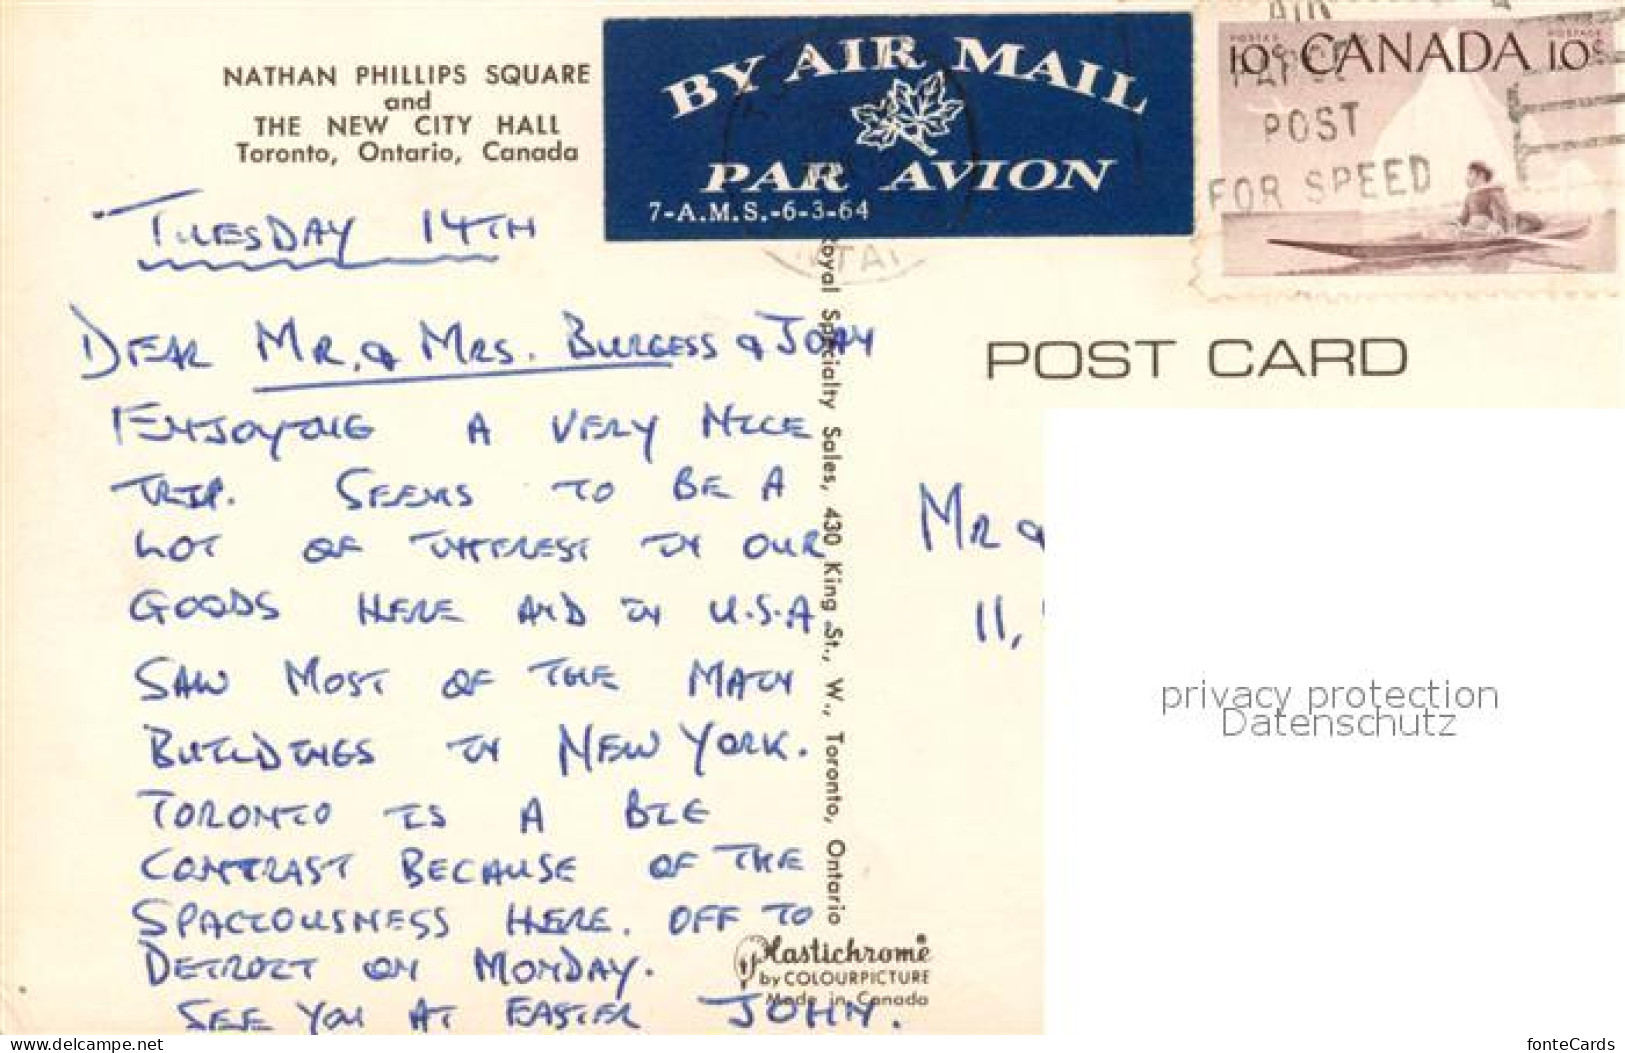 NATHAN PHILLIPS SQUARE
and
THE NEW CITY HALL
Toronto, Ontario, Canada
BY AIR MAIL
PAR AVION
7-A.M.S.-6-3-64
POSTES POSTAGE
10c CANADA 10c
AIR
POST
FOR SPEED
TUESDAY 14TH
DEAR MR. & MRS. BURGESS &
ENJOYING A VERY NICE
TRIP. SEEMS TO BE A
LOT OF INTEREST IN OUR
GOODS HERE AND IN U.S.A
SAW MOST OF THE MAIN
BUILDINGS IN NEW YORK.
TORONTO IS A BIG
CONTRAST BECAUSE OF THE
SPACIOUSNESS HERE. OFF TO
DETROIT ON MONDAY.
SEE YOU AT EASTER JOHN.
Royal Specialty Sales, 430 King St., W., Toronto, Ontario
Plastichrome®
by COLOURPICTURE
Made in Canada
POST CARD
MR &
11,
privacy protection
Datenschutz
www.delcampe.net
fonteCards